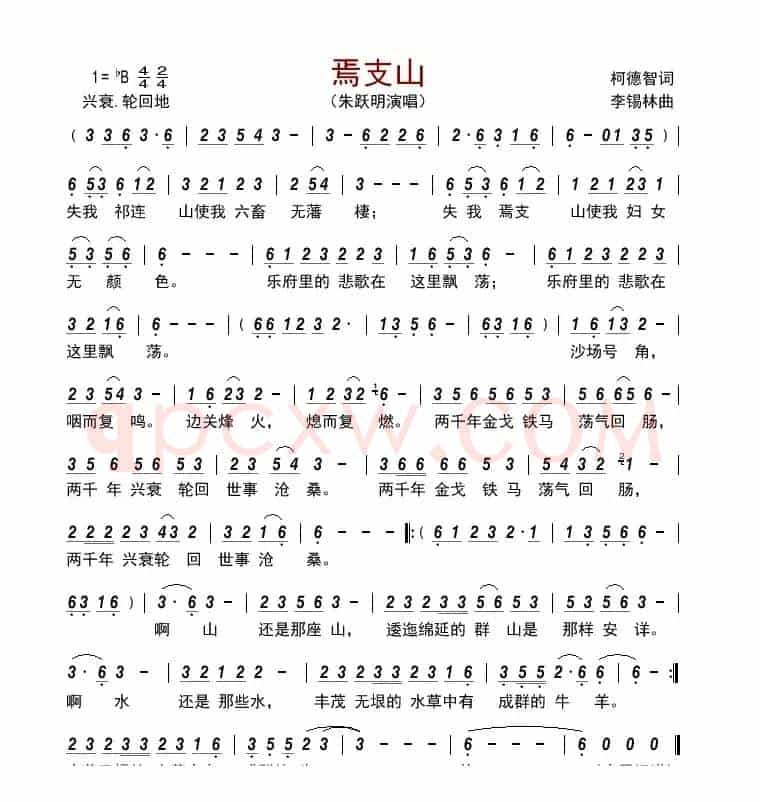 焉支山
1= ♭B 4/4 2/4
柯德智词
兴衰.轮回地
（朱跃明演唱）
李锡林曲
( 3 3 6 3· 6 | 2 3 5 4 3 - | 3· 6 2 2 6 | 2· 6 3 1 6 | 6 - 0 1 3 5 ) |
6 5 3 6 1 2 | 3 2 1 2 3 | 2 5 4 - | 6 5 3 6 1 2 | 1 2 1 2 3 1 |
失我 祁连 山使我 六畜 无藩 棲； 失 我 焉支 山使我 妇 女
5 3 5 6 | 6 - - - | 6 1 2 3 2 2 3 | 1 6 5 3 6 - | 6 1 2 3 2 2 3 |
无 颜 色。 乐府里的 悲歌在 这里飘 荡； 乐府里的 悲歌在
3 2 1 6 | 6 - - - | ( 6 6 1 2 3 2· | 1 3 5 6 - | 6 6 3 5 ) | 1 6 1 3 2 |
这里飘 荡。 沙场号 角，
2 3 5 4 3 - | 1 6 2 3 - | 1 2 3 2 1 6 - | 3 5 6 5 6 5 3 | 5 6 5 6 1 - |
咽而复 鸣。 边关烽 火， 熄而复 燃。 两千年金戈 铁马 荡气回 肠，
3 5 6 5 6 5 3 | 2 2 3 5 4 3 - | 3 6 6 6 5 6 5 6 | 5 5 4 3 2 | 2 1 - |
两千 年 兴衰 轮回 世事 沧 桑。 两千年 金戈 铁 马 荡气 回 肠，
2 2 2 2 3 4 3 2 | 3 2 1 6 | 6 - - - ‖: ( 6 1 2 3 2· 1 | 1 3 5 6 6 - |
两千年 兴衰轮 回 世事 沧 桑。
6 3 1 6 ) | 3· 6 3 - | 2 3 5 6 3 - | 2 3 2 3 3 5 6 5 3 | 5 6 5 6 6 - |
啊 山 还是那座 山， 逶迤绵延的 群 山是 那样 安 详。
3· 6 3 - | 3 2 1 2 2 - | 2 3 2 3 3 2 3 1 6 | 3 5 5 5 | 2· 6 6 - :‖
啊 水 还是 那些水， 丰茂 无垠的 水草中有 成群的 牛 羊。
2 3 2 3 3 2 3 1 6 | 3 5 5 2 3 | 3 - - - | 6 - - - | 6 0 0 0 ‖